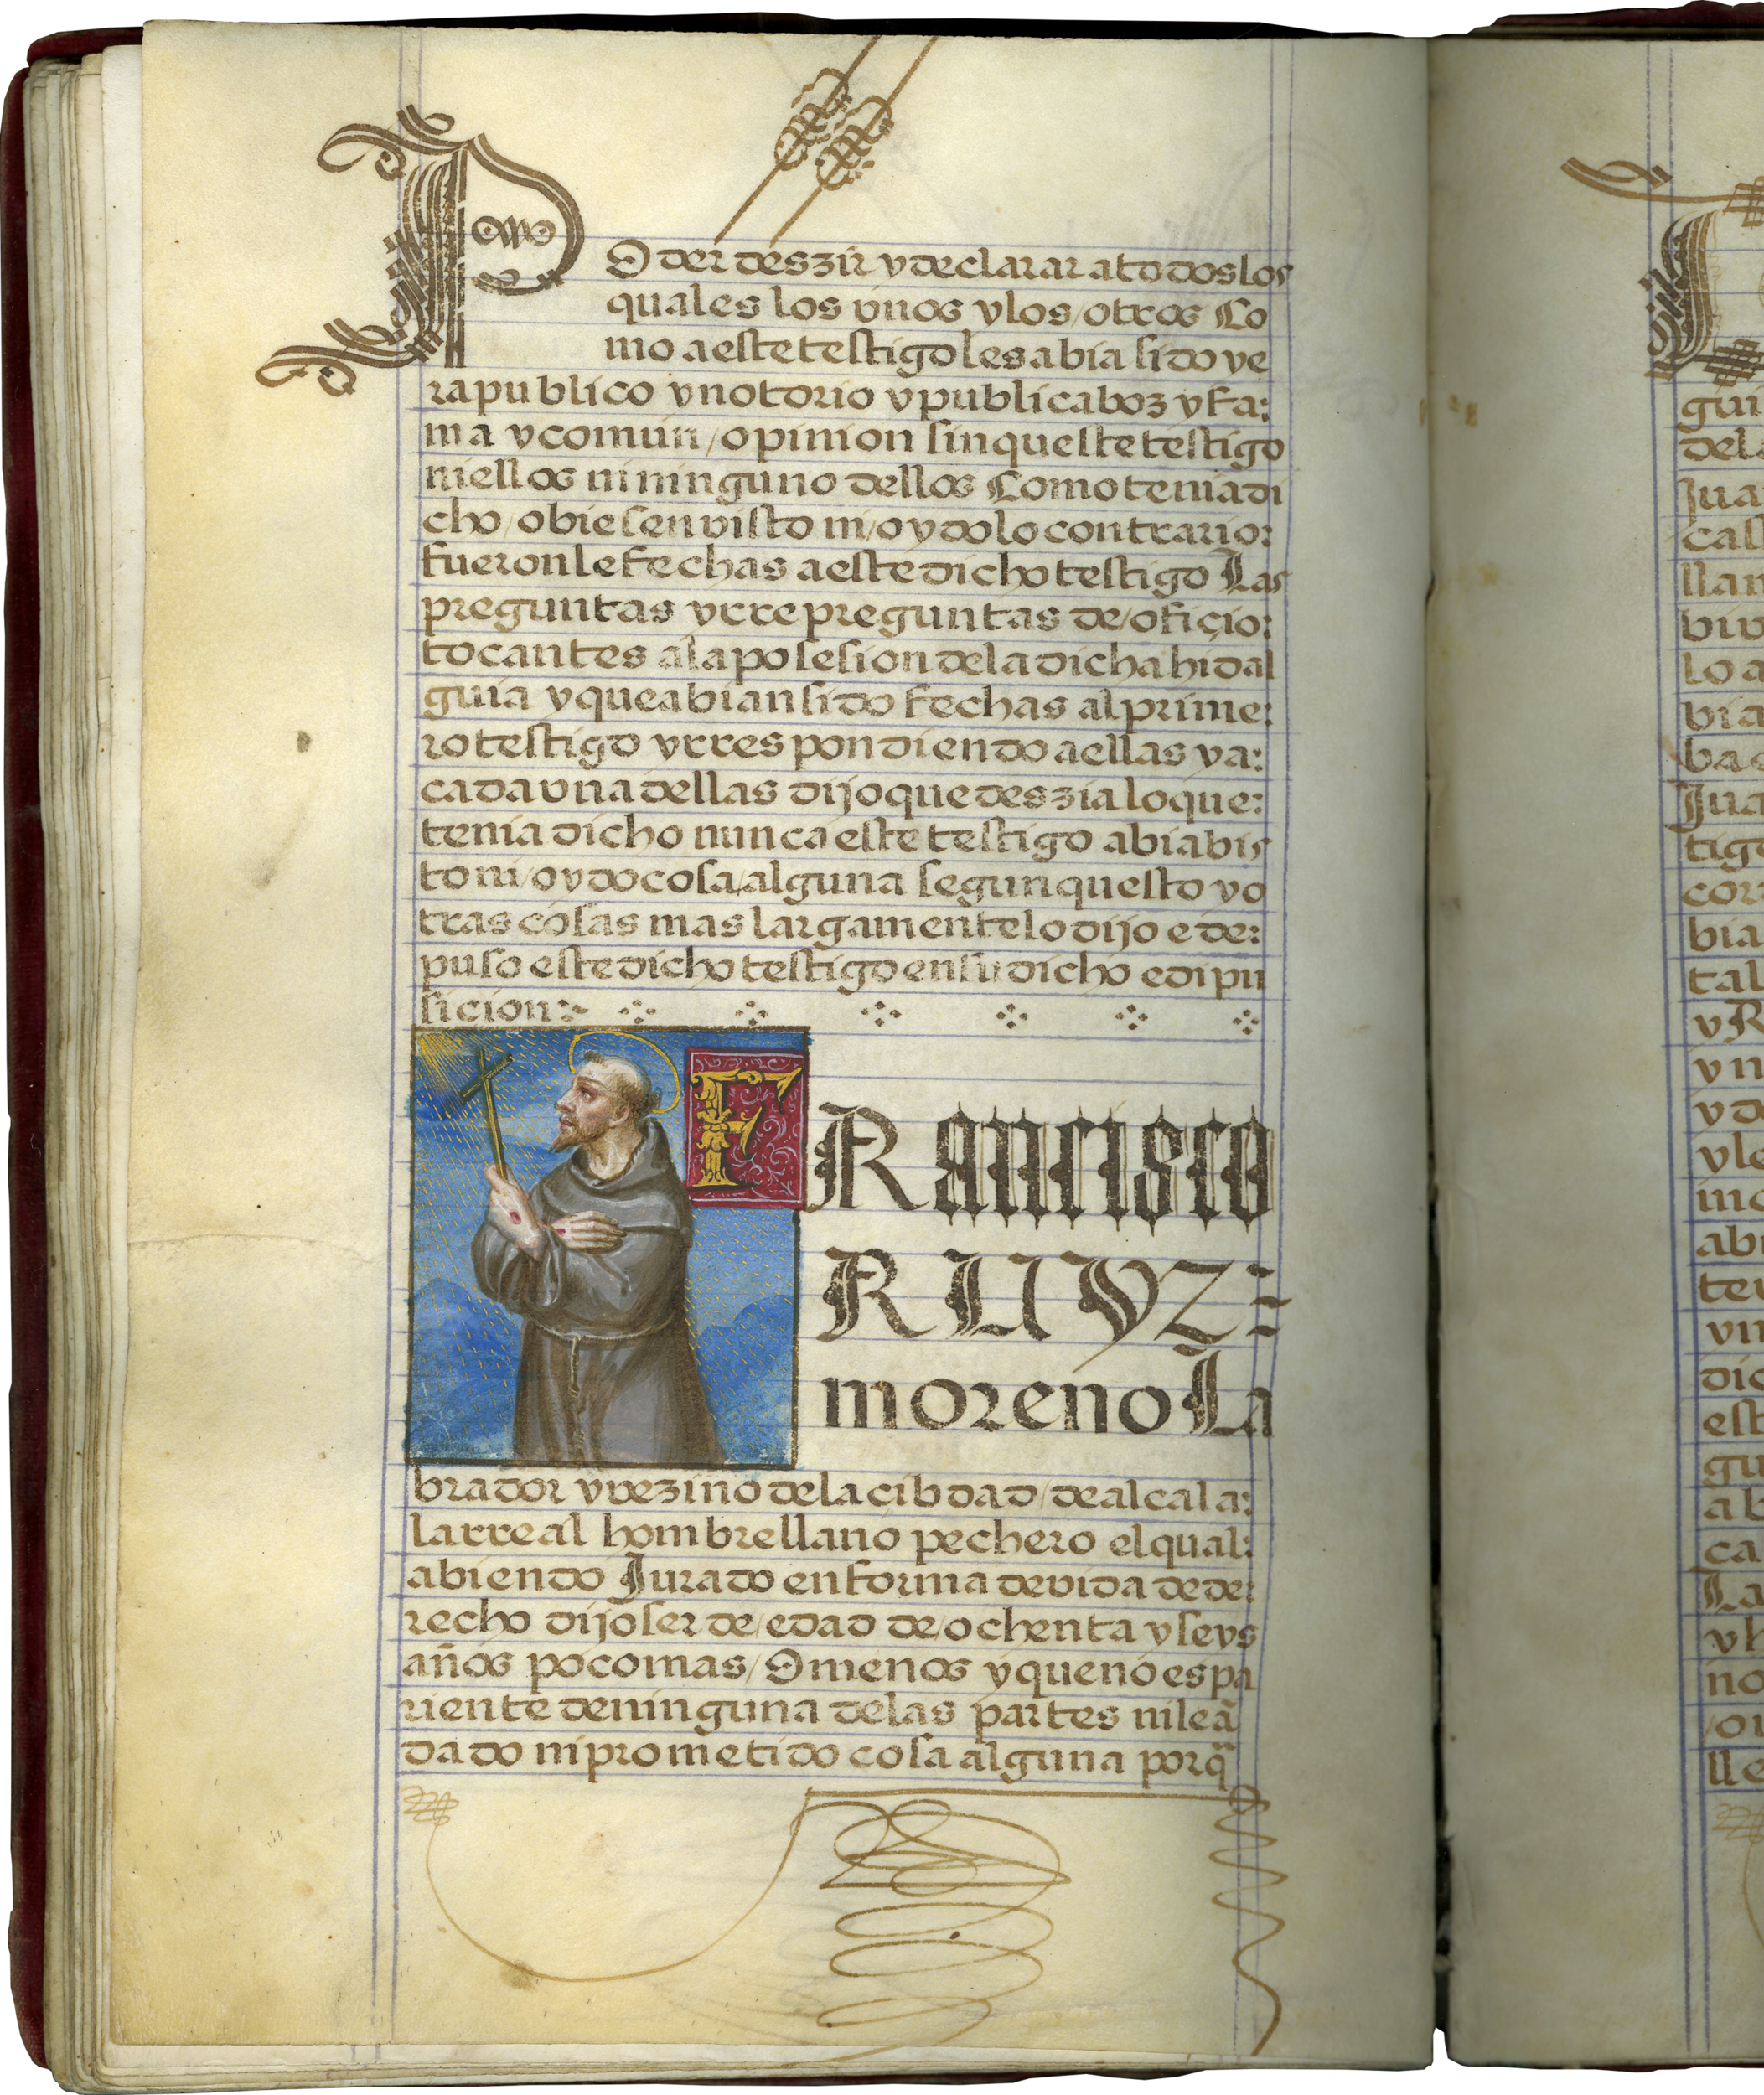 PODer deszir y declarar a todos los
quales los vnos y los/otros Co
mo a este testigo les abia sido ye
ra publico y notorio y publica boz y fa:
ma y comun/opinion sin queste testigo
ni ellos ni ninguno dellos Como tenia di
cho/obiesen visto ni/oydo lo contrario:
fueronle fechas a este dicho testigo Las
preguntas y rrepreguntas de/ofiçio:
tocantes a la posesion de la dicha hidal
guia y que abian sido fechas al prime:
ro testigo y rrespondiendo a ellas y a:
cada vna dellas dijo que deszia lo que:
tenia dicho nunca este testigo abia bis
to ni/oydo cosa/alguna segun questo y o
tras cosas mas largamente lo dijo e de:
puso este dicho testigo en su dicho e dipu
sicion:
FRancisco
RUYZ
moreno La
brador y vezino de la cibdad/de alcala:
la rreal hombre llano pechero el qual:
abiendo Jurado en forma devida de de:
recho dijo ser de/edad de/ochenta y seys
años poco mas/O menos y que no es pa
riente de ninguna de las partes ni le ã
dado ni prometido cosa alguna porq̃
gui
dela
Jua
cas
llan
biv
lo a
bia
ba
Jua
tigo
cor
bia
tal
y R
y n
y d
y le
mo
abi
ter
vn
dic
est
gu
a b
ca
La
y h
no
/o
lle